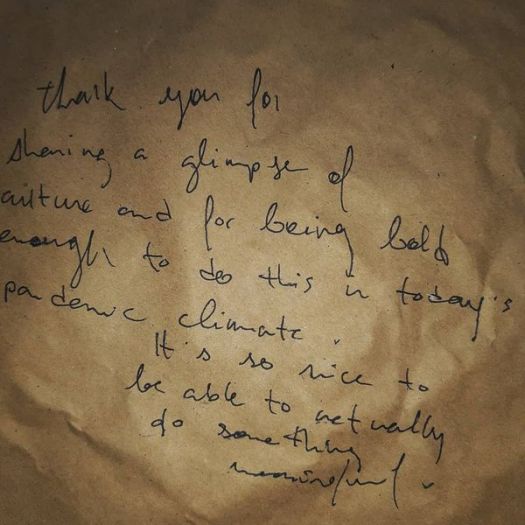 thank you for
sharing a glimpse of
culture and for being bold
enough to do this in today's
pandemic climate.
It's so nice to
be able to actually
do something
meaningful.